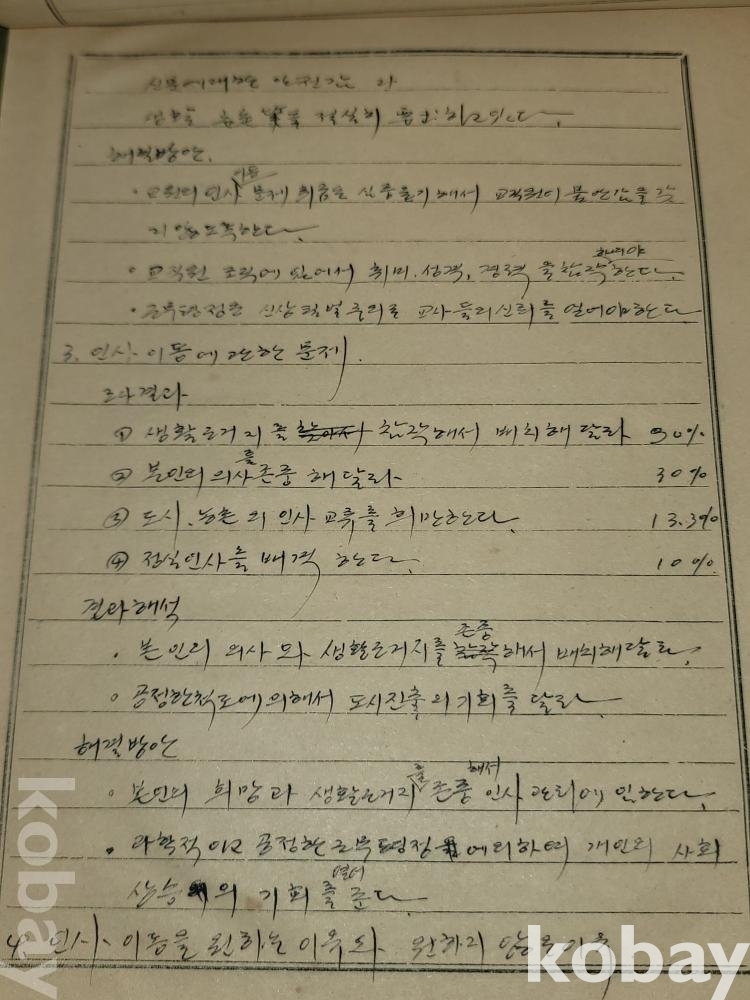 신분에 대한 안전감과
해결방안.
이동
· 교원의 인사 문제 취급을 신중을 기해서 교직원이 불안감을 갖
지 않도록 한다.
하여야
· 교직원 조직에 있어서 취미, 성격, 경력을 참작 한다.
· 근무평정은 신상필벌주의로 교사들의 신뢰를 얻어야 한다
3. 인사 이동에 관한 문제.
조사결과
① 생활근거지를 참작해서 배치해 달라 90%
② 본인의 의사를 존중해 달라 30%
③ 도시, 농촌의 인사교류를 희망한다. 13.3%
④ 정실인사를 배격 한다. 10%
결과해석
존중
· 본인의 의사와 생활근거지를 참작해서 배치해달라.
· 공정한 척도에 의해서 도시진출의 기회를 달라
해결방안
를 해서
· 본인의 희망과 생활근거지 존중 인사관리에 임한다.
· 과학적이고 공정한 근무평정에 의하여 개인의 사회
열어
상승의 기회를 준다.
4. 인사 이동을 원하는 이유와 원하지 않는
kobay
kobay